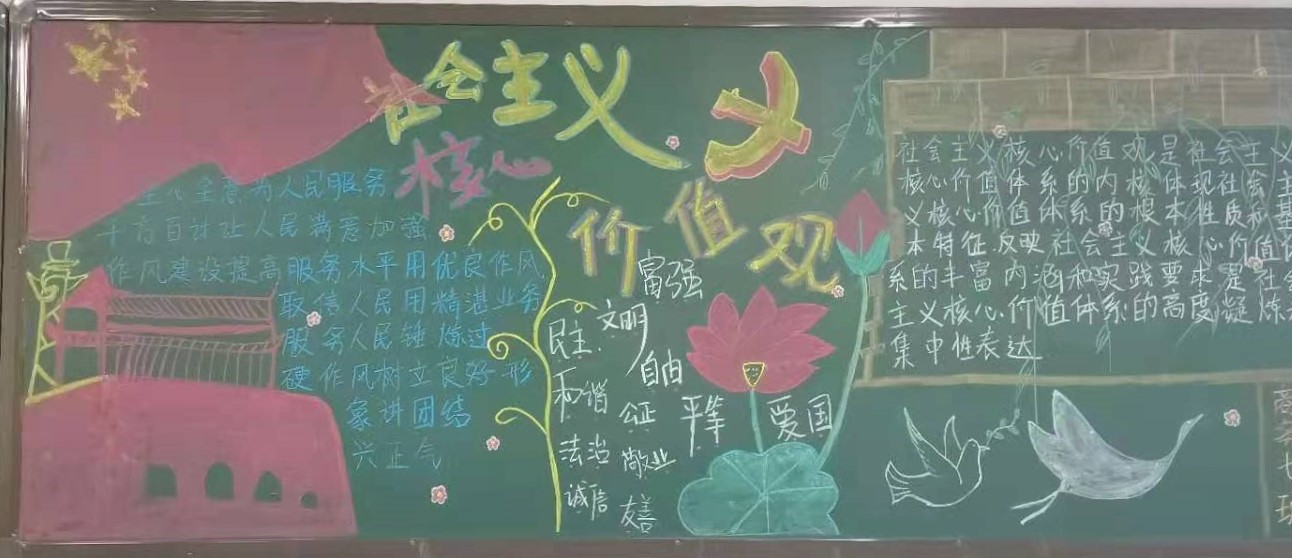 社会主义
核心
价值观
全心全意为人民服务
千方百计让人民满意加强
作风建设提高服务水平用优良作风
取信人民用精湛业务
服务人民锤炼过
硬作风树立良好形
象讲团结
兴正气
富强
民主
文明
和谐
自由
公证
平等
爱国
法治
敬业
诚信
友善
社会主义核心价值观是社会主义
核心价值体系的内核体现社会主
义核心价值体系的根本性质和基
本特征反映社会主义核心价值体
系的丰富内涵和实践要求是社会
主义核心价值体系的高度凝炼
集中性表达
商务七班